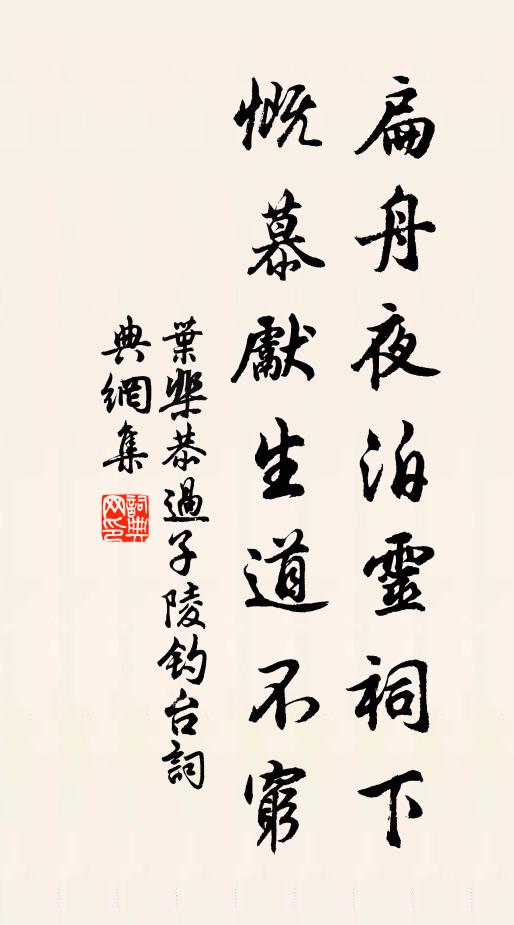 扁舟夜泊靈祠下
慨慕獻生道不窮
葉棐恭過子陵釣台詞
典網集
詞典網印